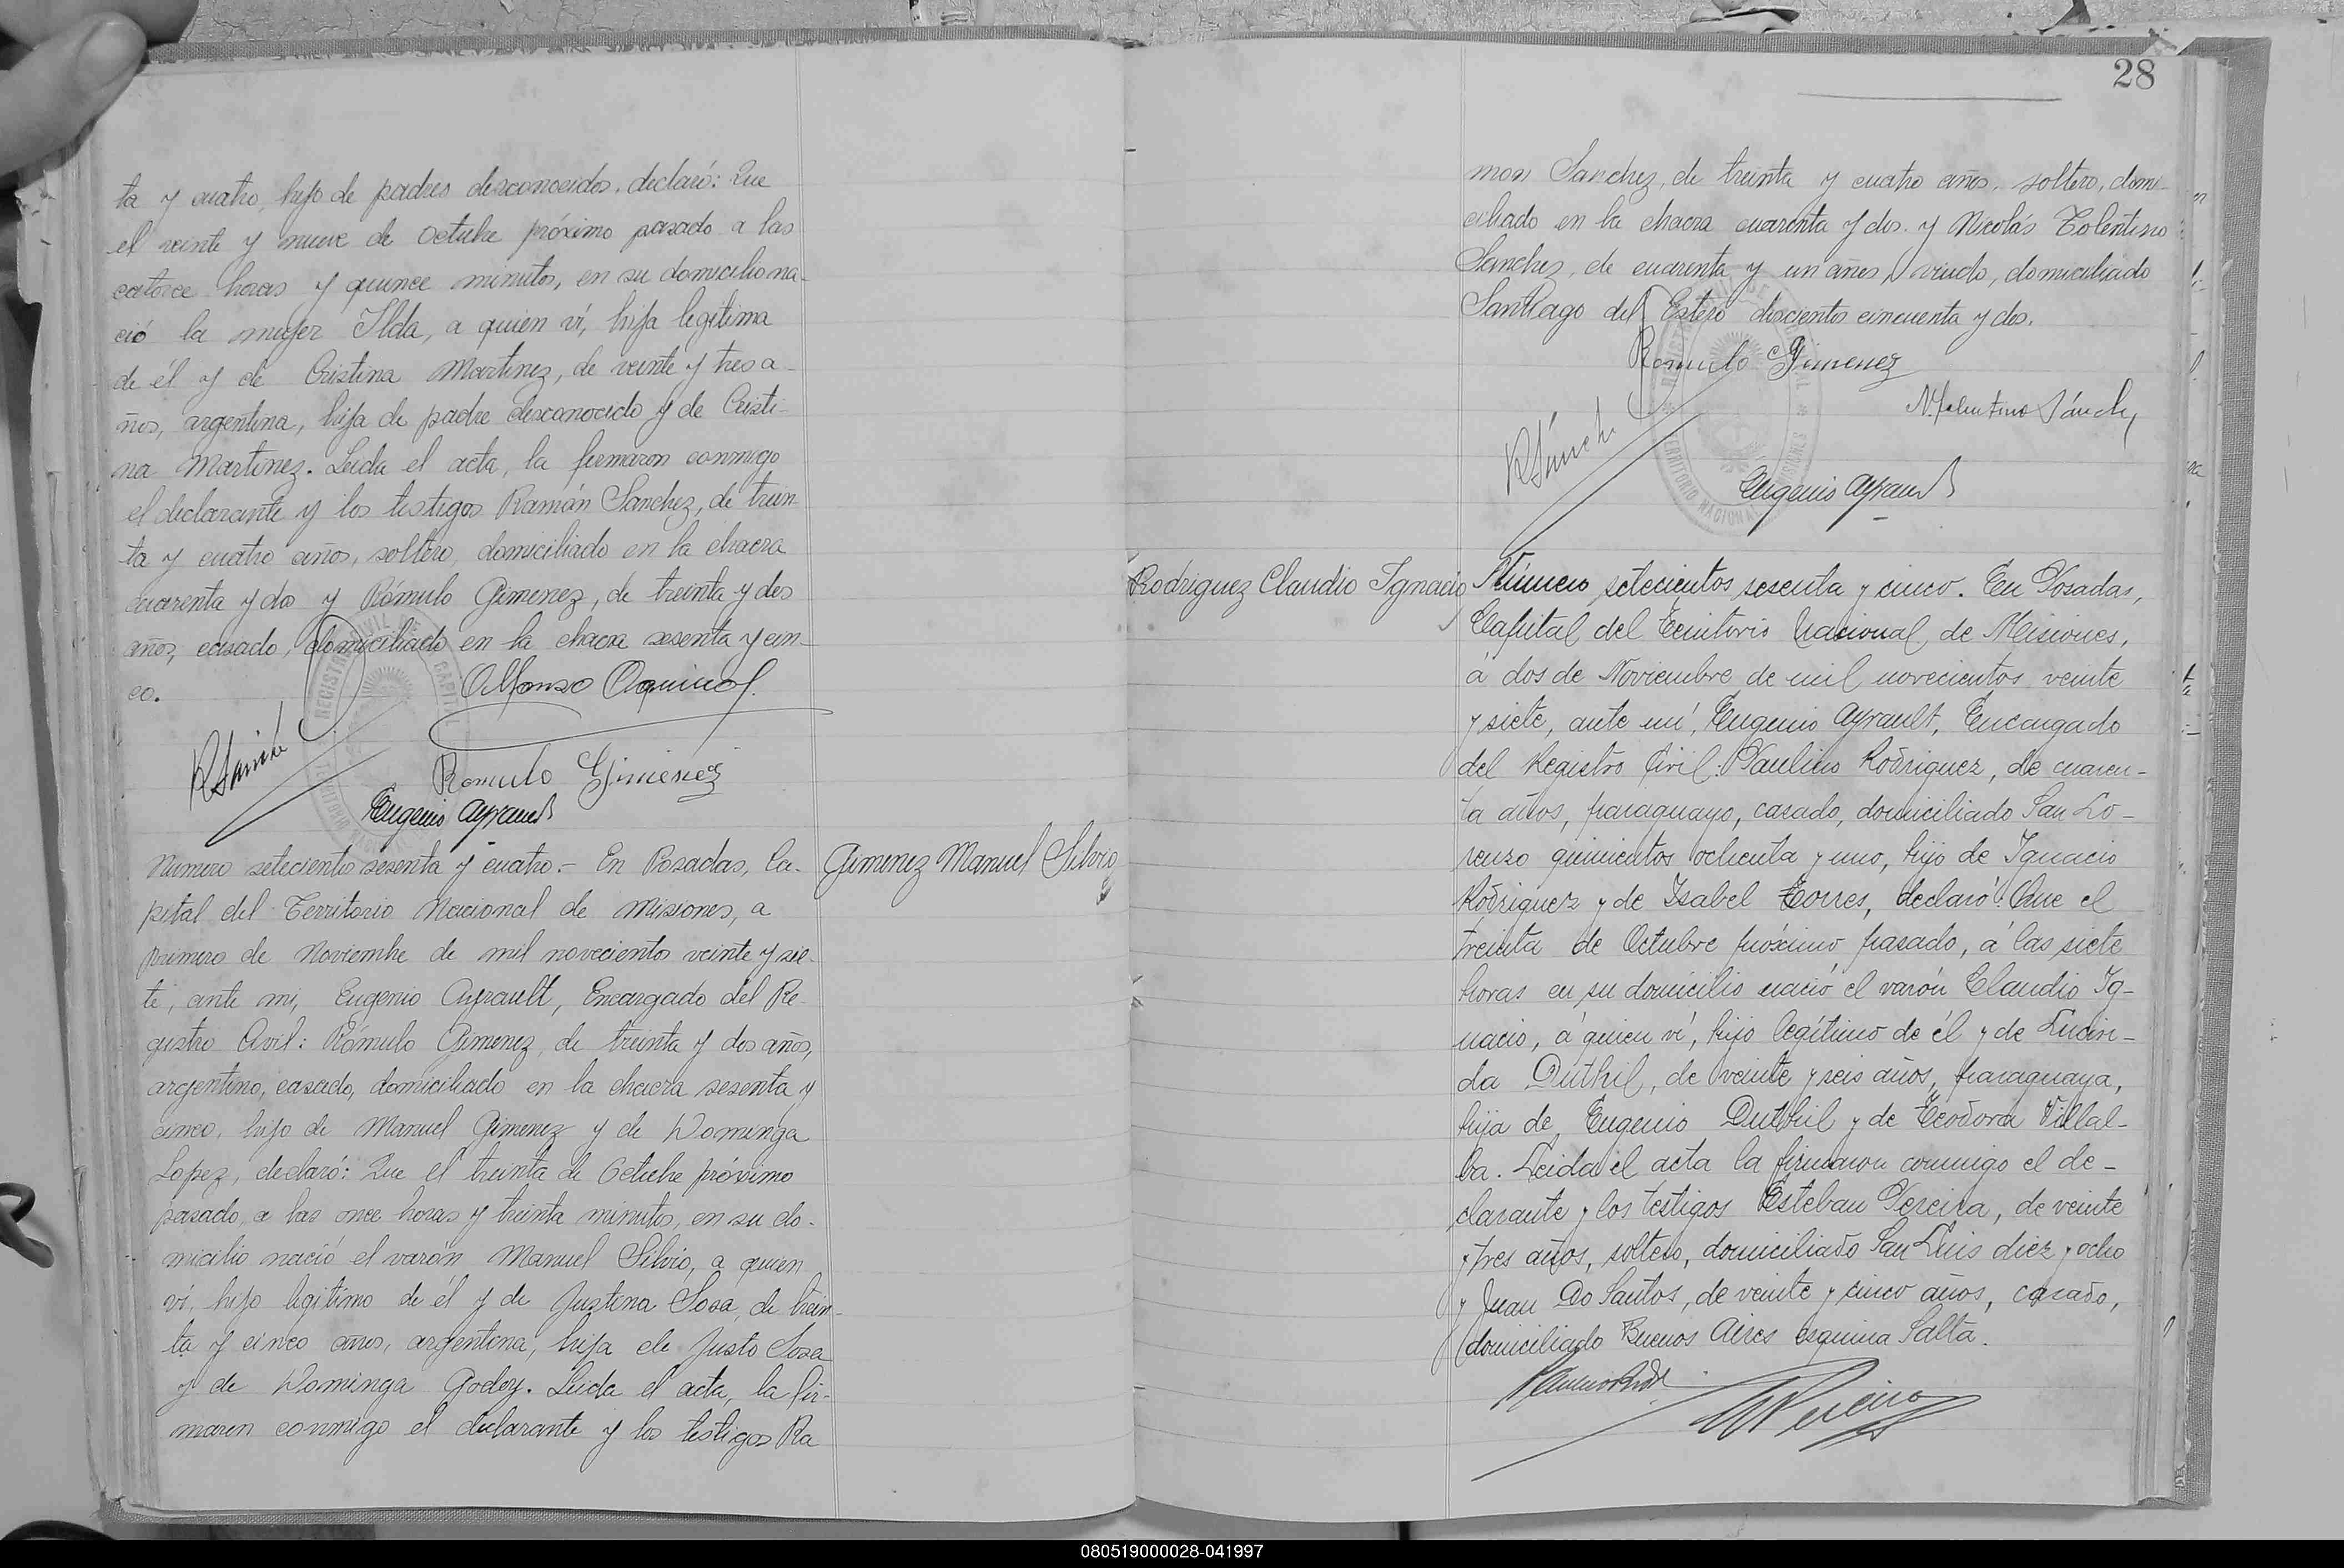 ta y cuatro, hijo de padres desconocidos, declaró: Que
el veinte y nueve de Octubre próximo pasado a las
catorce horas y quince minutos, en su domicilio na-
ció la mujer Ilda, a quien ví, hija legitima
de él y de Cristina Martinez, de veinte y tres a-
ños, argentina, hija de padre desconocido y de Cristi-
na Martinez. Leida el acta, la firmaron conmigo
el declarante y los testigos Ramón Sanchez, de trein
ta y cuatro años, soltero, domiciliado en la chacra
cuarenta y dos y Rómulo Gimenez, de treinta y dos
años, casado, domiciliado en la chacra sesenta y cin-
co.
Alfonso Aquino
RSanchez
Romulo Gimenez
Eugenio Ayrault
REGISTRO CIVIL DE LA CAPITAL
TERRITORIO
Numero setecientos sesenta y cuatro.- En Posadas, Ca-
Gimenez Manuel Silvio
pital del Territorio Nacional de Misiones, a
primero de Noviembre de mil novecientos veinte y sie-
te, ante mi, Eugenio Ayrault, Encargado del Re-
gistro Civil: Rómulo Gimenez, de treinta y dos años,
argentino, casado, domiciliado en la chacra sesenta y
cinco, hijo de Manuel Gimenez y de Dominga
Lopez, declaró: Que el treinta de Octubre próximo
pasado, a las once horas y treinta minutos, en su do-
micilio nació el varón Manuel Silvio, a quien
ví, hijo legitimo de él y de Justina Sosa, de trein-
ta y cinco años, argentina, hija de Justo Sosa
y de Dominga Godoy. Leida el acta, la fir-
maron conmigo el declarante y los testigos Ra
28
mon Sanchez, de treinta y cuatro años, soltero, domi-
ciliado en la chacra cuarenta y dos y Nicolás Tolentino
Sanchez, de cuarenta y un años, viudo, domiciliado
Santiago del Estero doscientos cincuenta y dos.
Romulo Gimenez
N. Tolentino Sánchez
RSanchez
Eugenio Ayrault
TERRITORIO NACIONAL MISIONES
Rodriguez Claudio Ignacio
Número setecientos sesenta y cinco. En Posadas,
Capital del Territorio Nacional de Misiones,
á dos de Noviembre de mil novecientos veinte
y siete, ante mí, Eugenio Ayrault, Encargado
del Registro Civil: Paulino Rodriguez, de cuaren-
ta años, paraguayo, casado, domiciliado San Lo-
renzo quinientos ochenta y uno, hijo de Ignacio
Rodriguez y de Isabel Torres, declaró: Que el
treinta de Octubre próximo pasado, á las siete
horas en su domicilio nació el varón Claudio Ig-
nacio, á quien ví, hijo legítimo de él y de Lucin-
da Duthil, de veinte y seis años, paraguaya,
hija de Eugenio Duthil y de Teodora Villal-
ba. Leida el acta la firmaron conmigo el de-
clarante y los testigos Esteban Pereira, de veinte
y tres años, soltero, domiciliado San Luis diez y ocho
y Juan Do Santos, de veinte y cinco años, casado,
domiciliado Buenos Aires esquina Salta.
Pereira
080519000028-041997